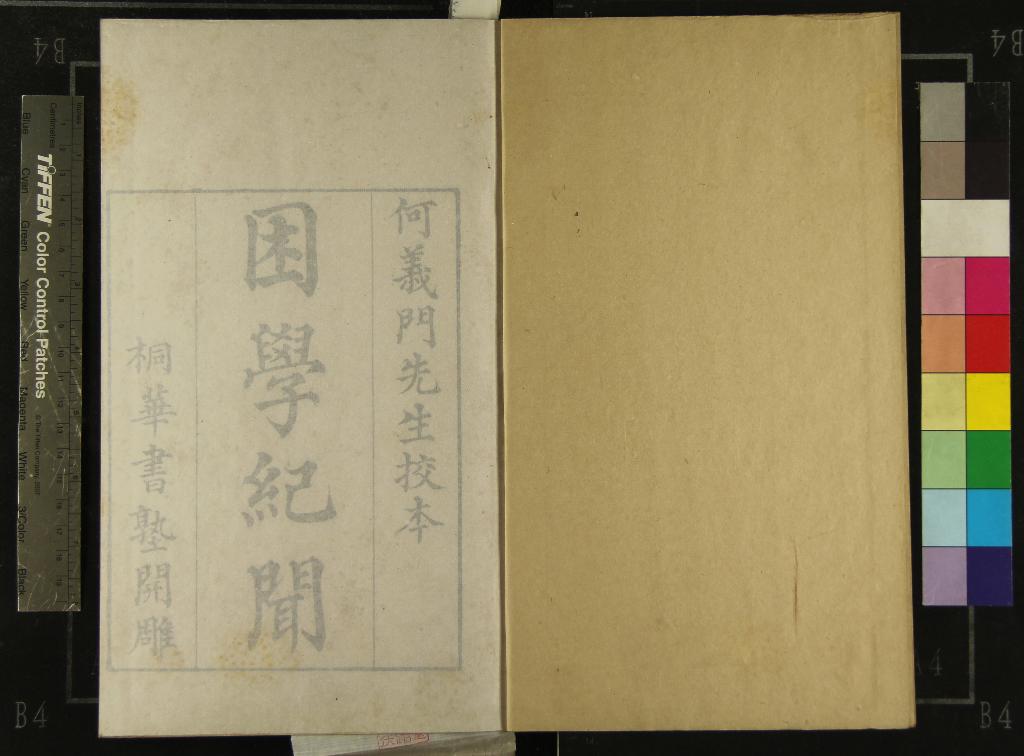 何義門先生挍本
困學紀聞
桐華書塾開雕
B4
B4
B4
B4
A4
Inches
Centimetres
TIFFEN Color Control Patches
© The Tiffen Company, 2007
Blue
Cyan
Green
Yellow
Red
Magenta
White
3/Color
Black